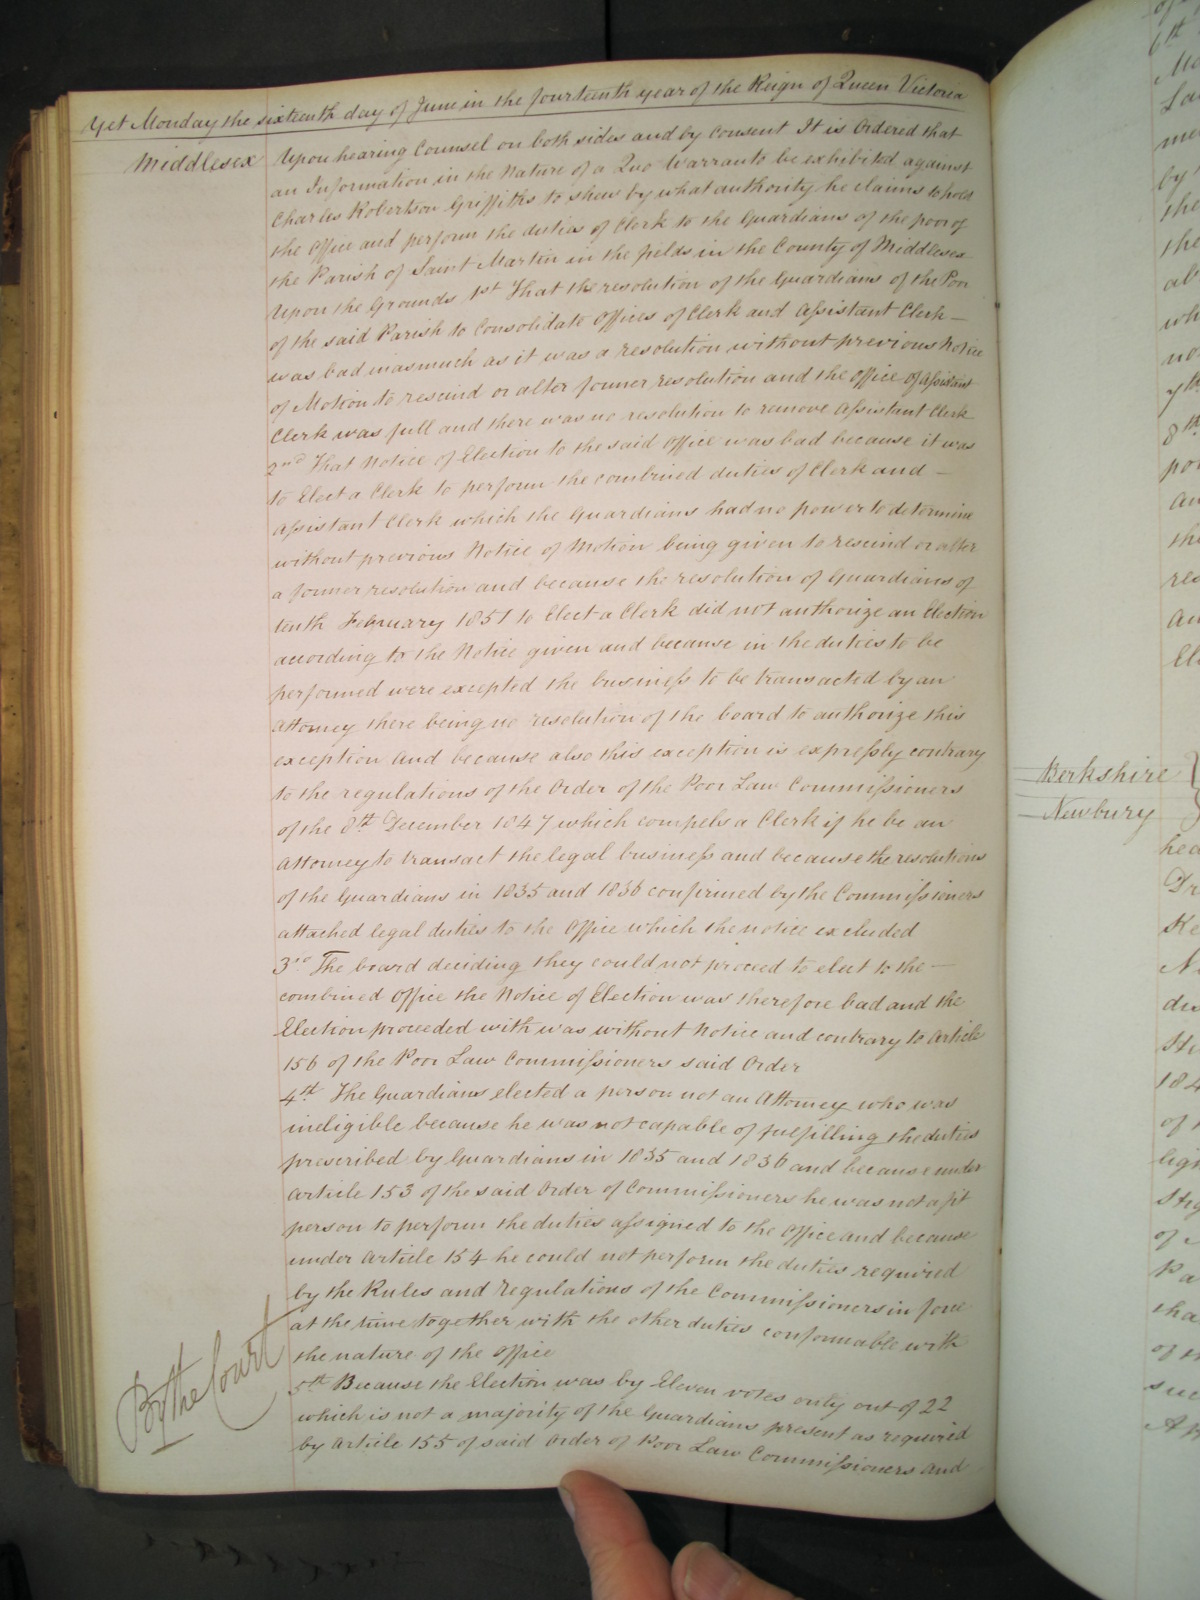 Yet Monday the sixteenth day of June in the fourteenth year of the Reign of Queen Victoria
Middlesex Upon hearing Counsel on both sides and by consent It is Ordered that
an Information in the Nature of a Quo Warranto be exhibited against
Charles Robertson Griffiths to shew by what authority he claims to hold
the Office and perform the duties of Clerk to the Guardians of the poor of
the Parish of Saint Martin in the fields in the County of Middlesex
Upon the Grounds 1st That the resolution of the Guardians of the Poor
of the said Parish to Consolidate Offices of Clerk and Assistant Clerk —
was bad inasmuch as it was a resolution without previous Notice
of Motion to rescind or alter former resolution and the Office of Assistant
Clerk was full and there was no resolution to remove Assistant Clerk
2nd That Notice of Election to the said Office was bad because it was
to Elect a Clerk to perform the combined duties of Clerk and —
Assistant Clerk which the Guardians had no power to determine
without previous Notice of Motion being given to rescind or alter
a former resolution and because the resolution of Guardians of
tenth February 1851 to Elect a Clerk did not authorize an Election
according to the Notice given and because in the duties to be
performed were excepted the business to be transacted by an
Attorney there being no resolution of the board to authorize this
exception and because also this exception is expressly contrary
to the regulations of the Order of the Poor Law Commissioners
of the 8th December 1847 which compels a Clerk if he be an
Attorney to transact the legal business and because the resolutions
of the Guardians in 1835 and 1836 confirmed by the Commissioners
attached legal duties to the Office which the notice excluded
3rd The board deciding they could not proceed to elect to the —
combined Office the Notice of Election was therefore bad and the
Election proceeded with was without Notice and contrary to Article
156 of the Poor Law Commissioners said Order
4th The Guardians elected a person not an Attorney who was
ineligible because he was not capable of fulfilling the duties
prescribed by Guardians in 1835 and 1836 and because under
Article 153 of the said Order of Commissioners he was not a fit
person to perform the duties assigned to the Office and because
under Article 154 he could not perform the duties required
by the Rules and Regulations of the Commissioners in force
at the time together with the other duties conformable with
the nature of the Office
By the Court
5th Because the Election was by Eleven votes only out of 22
which is not a majority of the Guardians present as required
by Article 155 of said Order of Poor Law Commissioners and
Berkshire
Newbury